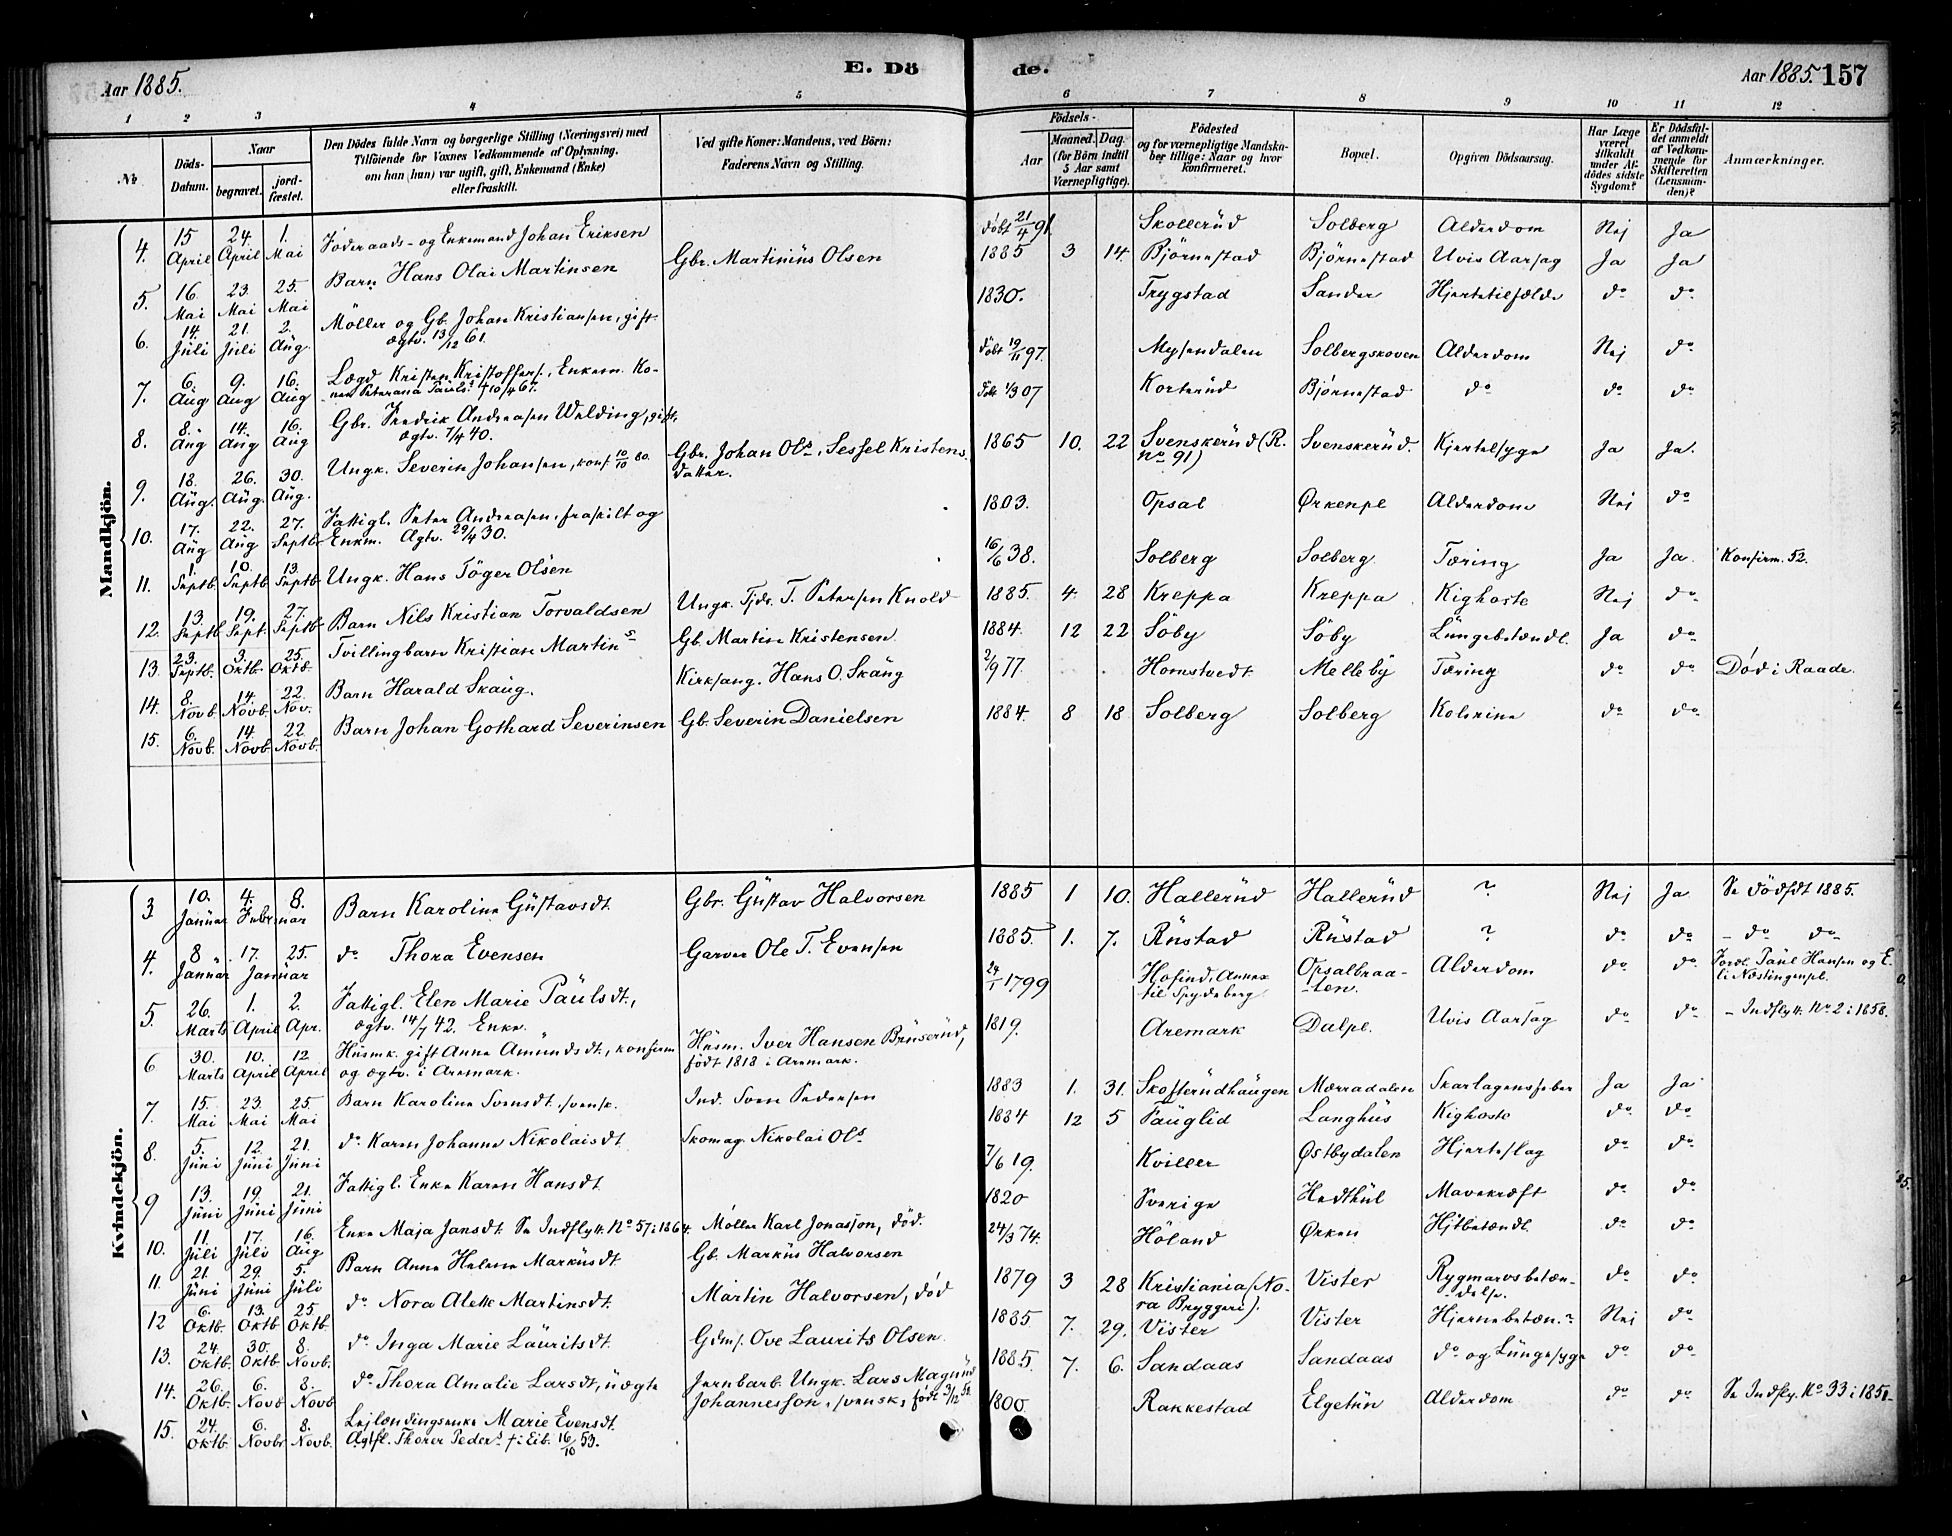 Aar 1885.
E. Dö
de.
Aar 1885. 157
1 2 3 4 5 6 7 8 9 10 11 12
No
Döds-Datum.
Naar
begravet.
jordfæstet.
Den Dödes fulde Navn og borgerlige Stilling (Næringsvei) med
Tilföiende for Voxnes Vedkommende af Oplysning,
om han (hun) var ugift, gift, Enkemand (Enke)
eller fraskilt.
Ved gifte Koner: Mandens, ved Börn:
Faderens Navn og Stilling.
Födsels-
Aar
Maaned. Dag.
(for Börn indtil
5 Aar samt
Værnepligtige).
Födested
og for værnepligtige Mandskaber tillige: Naar og hvor
konfirmeret.
Bopæl.
Opgiven Dödsaarsag.
Har Læge
været
tilkaldt
under Afdödes sidste
Sygdom?
Er Dödsfaldet anmeldt
af Vedkommende for
Skifteretten
(Lensmanden)?
Anmærkninger.
Mandkjön.
4. 15 April 24. April 1. Mai Föderaads- og Enkemand Johan Eriksen döbt 21/4 91. Skollerüd Solberg Alderdom Nej Ja
5. 16. Mai 23. Mai 25. Mai Barn Hans Olai Martinsen Gbr. Martinüs Olsen 1885 3 14. Björnestad Björnestad Uvis Aarsag Ja Ja
6. 14. Jüli 21. Jüli 2. Aüg. Möller og Gb. Johan Kristiansen, gift.
ægtv. 13/12 61. 1830. Trygstad Sander Hjertetilfælde do do
7. 6. Aüg 9. Aug 16. Aüg Lægd Kristen Kristoffers., Enkem. Konen Peterana Paüls. † 10/4 67. döbt 19/11 97. Mysendalen Solbergskoven Alderdom Nej do
8. 8. Aüg 14. Aüg 16. Aüg Gbr. Fredrik Andreasen Welding, gift,
ægtv. 7/4 40. Föbt 1/3 07 Korterüd Björnestad do do do
9. 18. Aüg. 26. Aüg. 30. Aüg. Ungk. Severin Johansen, konf 10/10 80. Gbr. Johan Ols., Sessel Kristensdatter. 1865 10. 22 Svenskerüd (R. no 91) Svenskerüd. Kjertelsyge Ja Ja.
10. 17. Aüg 22. Aüg 27. Septb Fattigl. Peter Andreasen, fraskilt og
Enkm. Ægtv. 29/4 30. 1803. Opsal Ørkenpl Alderdom Nej do
11. 1. Septb. 10. Septb 13. Septb Ungk. Hans Töger Olsen 16/6 38. Solberg Solberg. Tæring Ja Ja. Konfirm. 52.
12. 13. Septb 19. Sept. 27. Septb Barn Nils Kristian Torvaldsen Ungk. Tjds. T. Petersen Knold 1885 4. 28 Kreppa Kreppa Kighoste Nej do
13. 23. Septb. 3. Oktb. 25. Oktb. Tvillingbarn Kristian Martins Gb. Martin Kristensen. 1884. 12 22 Söby Söby Lüngebetændl. Ja do
14. 8. Novb 14. Novb. 22. Nov. Barn Harald Skaüg. Kirksang. Hans O. Skaüg 2/9 77 Homstvedt. Melleby Tæring do do Död i Raade.
15. 6. Novb. 14. Novb. 22. Novb. Barn Johan Gothard Severinsen Gb. Severin Danielsen 1884 8 18 Solberg Solberg Kolerine do do
Kvindekjön.
3. 10. Janüar 4. Febr 8. uar Barn Karoline Güstavsdt. Gbr. Güstav Halvorsen 1885 1 10. Hallerüd Hallerüd ? Nej Ja Se dödfdt 1885.
4. 8 Janüar 17. Janüar 25. do Thora Evensen Garver Ole T. Evensen 1885. 1. 7. Rüstad Rüstad ? do do – do do
5. 26. Marts 1. April 2. Apr. Fattigl. Elen Marie Paülsdt.,
ægtv. 14/7 42. Enke. 24/1 1799 Hofind, Annex til Spydeberg Opsalbraaten. Alderdom do do Forl. Paül Hansen og Eli Næstingenpl.
6 30. Marts 10. April 12 April Hüsmk. gift Anne Amündsdt., konfirm
og ægtv. i Aremark. Hüsm. Iver Hansen Brüserüd,
født 1818 i Aremark. 1819. Aremark Dalpl. Uvis Aarsag do do – Indfly tt. No 2 i 1858.
7 15. Mai 23. Mai 25. Mai Barn Karoline Svensdt. svensk. Ind. Sven Pedersen 1883 1. 31. Skofterüdhaügen Mærradalen Skarlagensfeber Ja Ja
8. 5. Jüni 12. Jüni 21. Jüni do Karen Johanne Nikolaisdt. Skomag. Nikolai Ols 1884 12 5 Faüglid Langhüs Kighoste do do
9 13. Jüni 19. Jüni 21. Jüni Fattigl. Enke Karen Hansdt. 7/6 19. Kviller Østbydalen Hjerteslag do do
10. 11. Jüli 17. Jüli 16. Aüg Enke Maja Jansdt. Se Indfly tt. No 57 i 1864. Møller Karl Jonasson, død. 1820 Sverige Hedthül Mavekræft do do
11. 21. Jüni 29. Jüni 5. Jüli Barn Anne Helene Marküsdt. Gb. Marküs Halvorsen 24/3 74. Höland Ørken Hjtbetændt. do do
12 6. Oktb. 13. Oktb. 25. Oktb. do Nora Alette Martinsdt. Martin Halvorsen, død 1879 3 28 Kristiania (Nora Bryggeri). Vister Rygmarvsbetændelse. do do
13. 24. Oktb. 30. Oktb 8. Novb. do Inga Marie Laüritsdt. Gdms. Ove Laurits Olsen. 1885 7. 29. Vister Vister Hjernebetæn.? Nej do
14. 26. Oktb. 6. Novb 8. Novb do Thora Amalie Larsdt, üægte Jernbarb. Ungk. Lars Magnüd
Johannesson, svensk, født 3/12 52 1885. 7. 6. Sandaas Sandaas do og Lüngesyge do do
15. 24. Oktb. 6 Novbr 8. Novb. Lejlændingsenke Marie Evensdt.
Ægtfl. Thorer Peders † i Eib. 16/10 53. 1800. Rakkestad Elgetün Alderdom do do Se Indfly. No 33 i 1851.